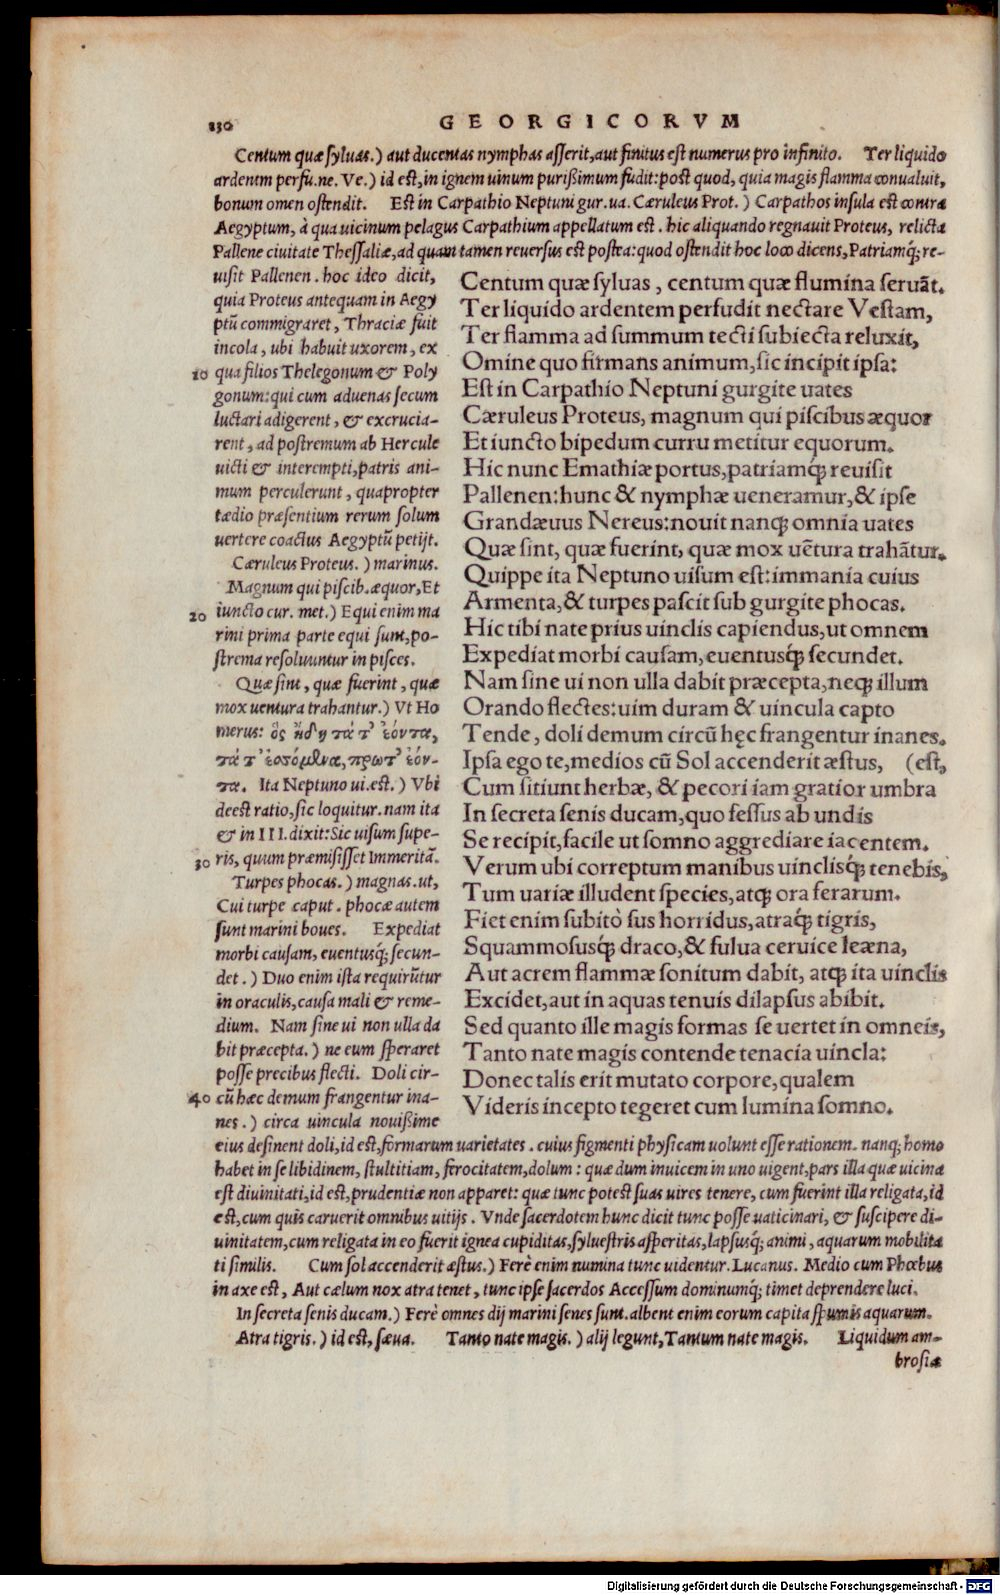 230 GEORGICORVM
Centum quæ syluas.) aut ducentas nymphas asserit, aut finitus est numerus pro infinito. Ter liquido
ardentem perfu.ne. Ve.) id est, in ignem uinum purißimum fudit: post quod, quia magis flamma conualuit,
bonum omen ostendit. Est in Carpathio Neptuni gur.ua. Cæruleus Prot.) Carpathos insula est contra
Aegyptum, à qua uicinum pelagus Carpathium appellatum est. hic aliquando regnauit Proteus, relicta
Pallene ciuitate Thessaliæ, ad quam tamen reuersus est postea: quod ostendit hoc loco dicens, Patriamq́; re-
uisit Pallenen. hoc ideo dicit,
quia Proteus antequam in Aegy
ptũ commigraret, Thraciæ fuit
incola, ubi habuit uxorem, ex
10 qua filios Thelegonum & Poly
gonum: qui cum aduenas secum
luctari adigerent, & excrucia-
rent, ad postremum ab Hercule
uicti & interempti, patris ani-
mum perculerunt, quapropter
tædio præsentium rerum solum
uertere coactus Aegyptũ petijt.
Cæruleus Proteus.) marinus.
Magnum qui piscib. æquor, Et
20 iuncto cur. met.) Equi enim ma
rini prima parte equi sunt, po-
strema resoluuntur in pisces.
Quæ sint, quæ fuerint, quæ
mox uentura trahantur.) Vt Ho
merus: ὃς ᾔδη τά τ' ἐόντα,
τά τ' ἐσσόμενα, πρωτ' ἐόν-
τα. Ita Neptuno ui.est.) Vbi
deest ratio, sic loquitur. nam ita
& in III. dixit: Sic uisum supe-
30 ris, quum præmisisset Immeritã.
Turpes phocas.) magnas. ut,
Cui turpe caput. phocæ autem
sunt marini boues. Expediat
morbi causam, euentusq́; secun-
det.) Duo enim ista requirũtur
in oraculis, causa mali & reme-
dium. Nam sine ui non ulla da
bit præcepta.) ne eum speraret
posse precibus flecti. Doli cir-
40 cũ hæc demum frangentur ina-
nes.) circa uincula nouißime
Centum quæ syluas, centum quæ flumina seruãt.
Ter liquido ardentem perfudit nectare Vestam,
Ter flamma ad summum tecti subiecta reluxit,
Omine quo firmans animum, sic incipit ipsa:
Est in Carpathio Neptuni gurgite uates
Cæruleus Proteus, magnum qui piscibus æquor
Et iuncto bipedum curru metitur equorum.
Hic nunc Emathiæ portus, patriamq́; reuisit
Pallenen: hunc & nymphæ ueneramur, & ipse
Grandæuus Nereus: nouit nanq; omnia uates
Quæ sint, quæ fuerint, quæ mox uẽtura trahãtur.
Quippe ita Neptuno uisum est: immania cuius
Armenta, & turpes pascit sub gurgite phocas.
Hic tibi nate prius uinclis capiendus, ut omnem
Expediat morbi causam, euentusq́; secundet.
Nam sine ui non ulla dabit præcepta, neq; illum
Orando flectes: uim duram & uincula capto
Tende, doli demum circũ hęc frangentur inanes.
Ipsa ego te, medios cũ Sol accenderit æstus, (est,
Cum sitiunt herbæ, & pecori iam gratior umbra
In secreta senis ducam, quo fessus ab undis
Se recipit, facile ut somno aggrediare iacentem.
Verum ubi correptum manibus uinclisq́; tenebis,
Tum uariæ illudent species, atq; ora ferarum.
Fiet enim subitò sus horridus, atraq́; tigris,
Squammosusq́; draco, & fulua ceruice leæna,
Aut acrem flammæ sonitum dabit, atq; ita uinclis
Excidet, aut in aquas tenuis dilapsus abibit.
Sed quanto ille magis formas se uertet in omneis,
Tanto nate magis contende tenacia uincla:
Donec talis erit mutato corpore, qualem
Videris incepto tegeret cum lumina somno.
eius desinent doli, id est, formarum uarietates. cuius figmenti physicam uolunt esse rationem. nanq; homo
habet in se libidinem, stultitiam, ferocitatem, dolum: quæ dum inuicem in uno uigent, pars illa quæ uicina
est diuinitati, id est, prudentiæ non apparet: quæ tunc potest suas uires tenere, cum fuerint illa religata, id
est, cum quis caruerit omnibus uitijs. Vnde sacerdotem hunc dicit tunc posse uaticinari, & suscipere di-
uinitatem, cum religata in eo fuerit ignea cupiditas, syluestris asperitas, lapsusq́; animi, aquarum mobilita
ti similis. Cum sol accenderit æstus.) Ferè enim numina tunc uidentur. Lucanus. Medio cum Phœbus
in axe est, Aut cælum nox atra tenet, tunc ipse sacerdos Accessum dominumq́; timet deprendere luci.
In secreta senis ducam.) Ferè omnes dij marini senes sunt. albent enim eorum capita spumis aquarum.
Atra tigris.) id est, sæua. Tanto nate magis.) alij legunt, Tantum nate magis. Liquidum am-
brosiæ
Digitalisierung gefördert durch die Deutsche Forschungsgemeinschaft - DFG